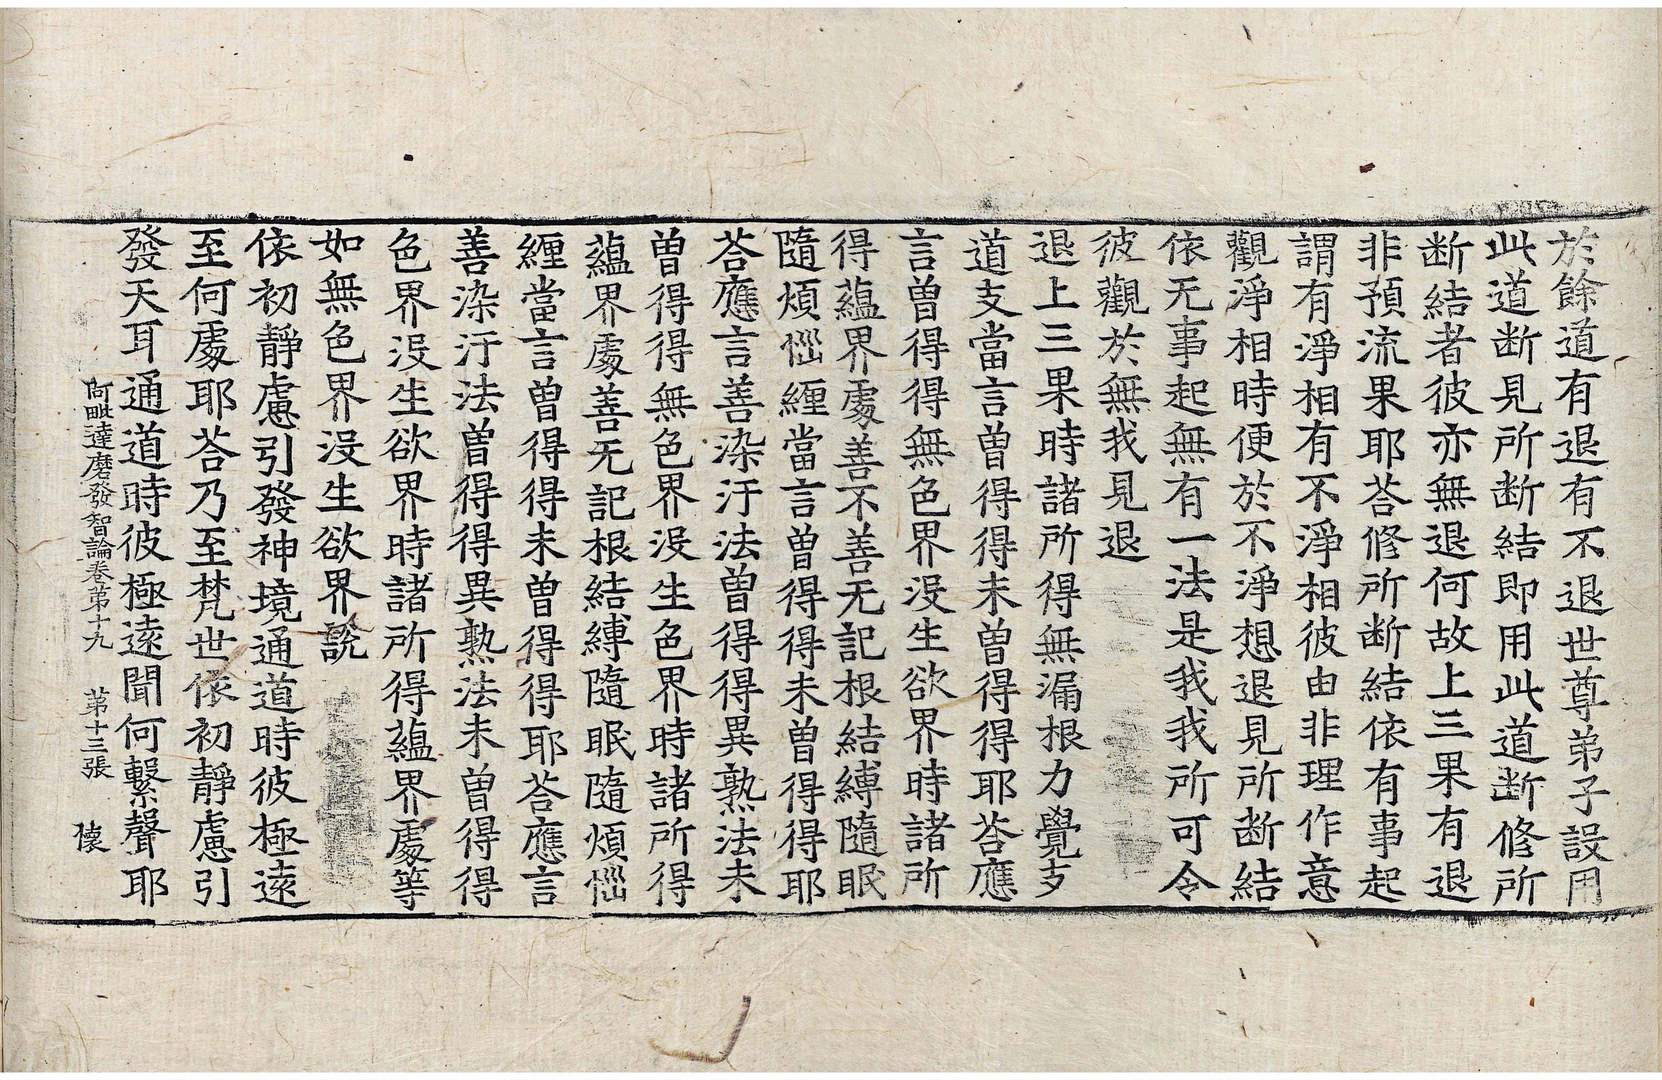 於餘道有退有不退世尊弟子設用
此道断見所断結即用此道断修所
断結者彼亦無退何故上三果有退
非預流果耶荅修所断結依有事起
謂有淨相有不淨相彼由非理作意
觀淨相時便於不淨想退見所断結
依无事起無有一法是我我所可令
彼觀於無我見退
退上三果時諸所得無漏根力覺支
道支當言曾得得未曾得得耶荅應
言曾得得無色界没生欲界時諸所
得蘊界處善不善无記根結縛隨眠
隨煩惱纏當言曾得得未曾得得耶
荅應言善染汙法曾得得異熟法未
曾得得無色界没生色界時諸所得
蘊界處善无記根結縛隨眠隨煩惱
纏當言曾得得未曾得得耶荅應言
善染汙法曾得得異熟法未曾得得
色界没生欲界時諸所得蘊界處等
如無色界没生欲界說
依初靜慮引發神境通道時彼極遠
至何處耶荅乃至梵世依初靜慮引
發天耳通道時彼極遠聞何繫聲耶
阿毗達磨發智論卷第十九 第十三張 懷